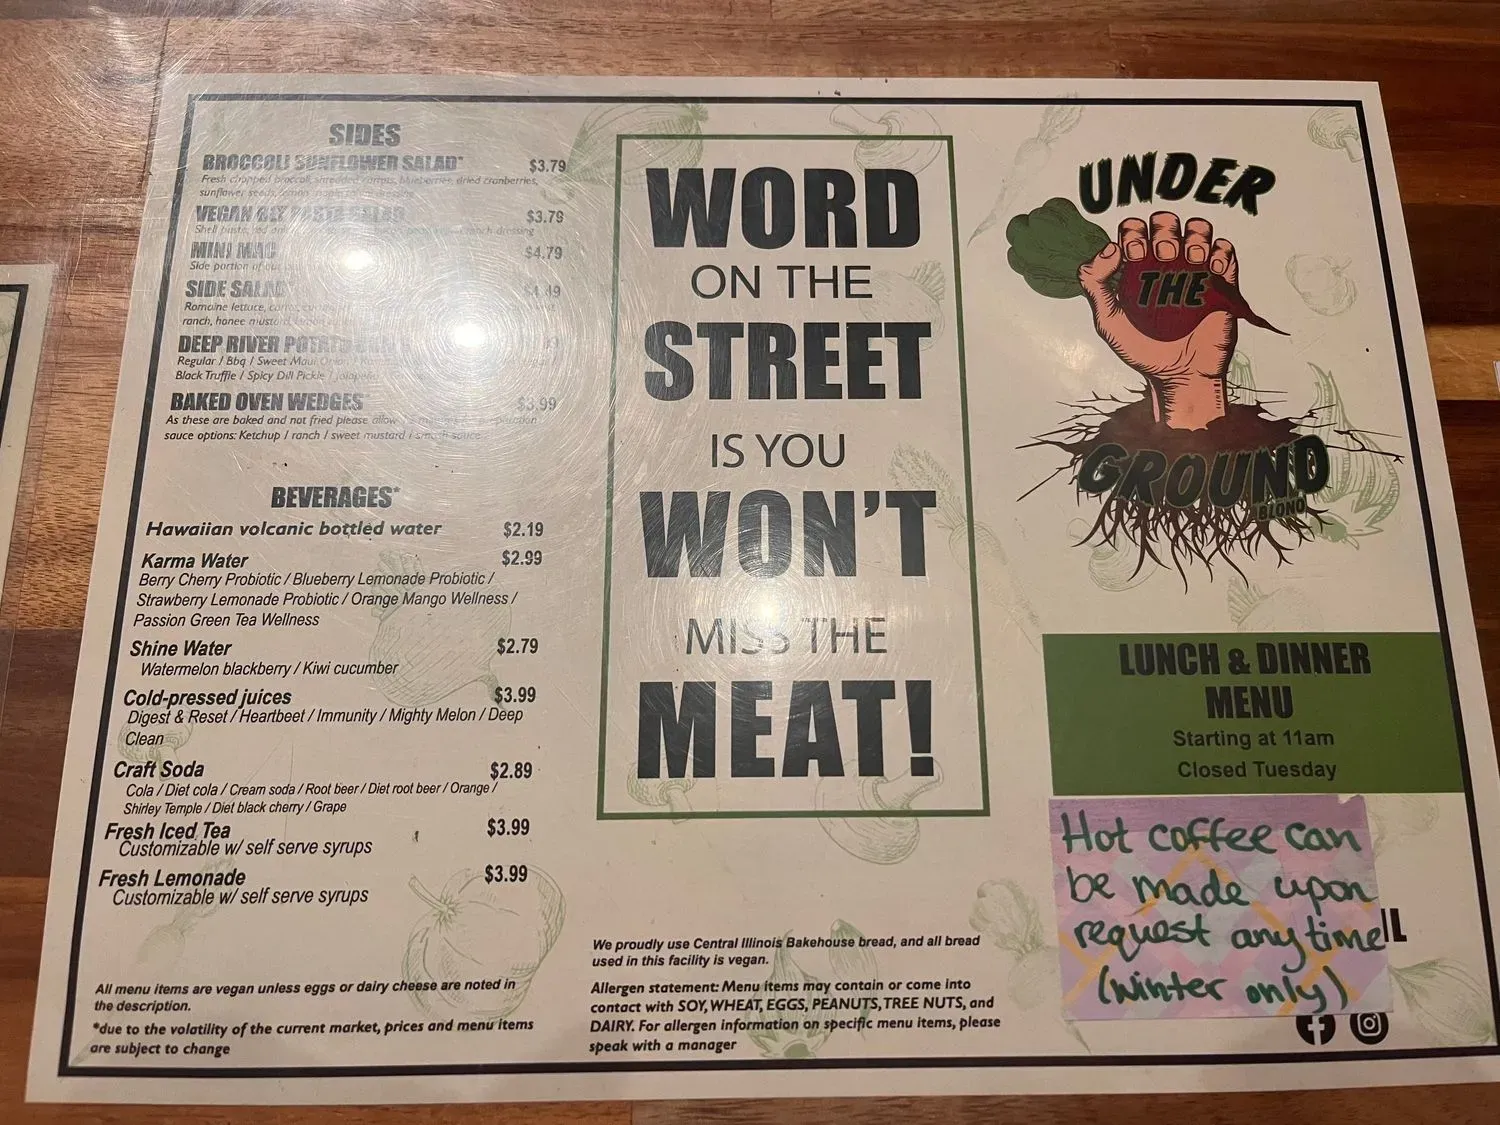 SIDES
BROCCOLI SUNFLOWER SALAD* $3.79
Fresh chopped broccoli, shredded carrots, blueberries, dried cranberries,
sunflower seeds, lemon
VEGAN BLT PASTA SALAD $3.79
Shell pasta, red ranch dressing
MINI MAC $4.79
Side portion of our
SIDE SALAD $4.49
Romaine lettuce, carrot,
ranch, honee mustard,
DEEP RIVER POTATO
Regular / Bbq / Sweet Maui Onion /
Black Truffle / Spicy Dill Pickle / Jalapeño
BAKED OVEN WEDGES* $3.99
As these are baked and not fried please allow
sauce options: Ketchup / ranch / sweet mustard / smash sauce
BEVERAGES*
Hawaiian volcanic bottled water $2.19
Karma Water $2.99
Berry Cherry Probiotic / Blueberry Lemonade Probiotic /
Strawberry Lemonade Probiotic / Orange Mango Wellness /
Passion Green Tea Wellness
Shine Water $2.79
Watermelon blackberry / Kiwi cucumber
Cold-pressed juices $3.99
Digest & Reset / Heartbeet / Immunity / Mighty Melon / Deep
Clean
Craft Soda $2.89
Cola / Diet cola / Cream soda / Root beer / Diet root beer / Orange /
Shirley Temple / Diet black cherry / Grape
Fresh Iced Tea $3.99
Customizable w/ self serve syrups
Fresh Lemonade $3.99
Customizable w/ self serve syrups
All menu items are vegan unless eggs or dairy cheese are noted in
the description.
*due to the volatility of the current market, prices and menu items
are subject to change
WORD
ON THE
STREET
IS YOU
WON'T
MISS THE
MEAT!
We proudly use Central Illinois Bakehouse bread, and all bread
used in this facility is vegan.
Allergen statement: Menu items may contain or come into
contact with SOY, WHEAT, EGGS, PEANUTS, TREE NUTS, and
DAIRY. For allergen information on specific menu items, please
speak with a manager
UNDER
THE
GROUND
BLONO
LUNCH & DINNER
MENU
Starting at 11am
Closed Tuesday
Hot coffee can
be made upon
request anytime
(winter only)
IL